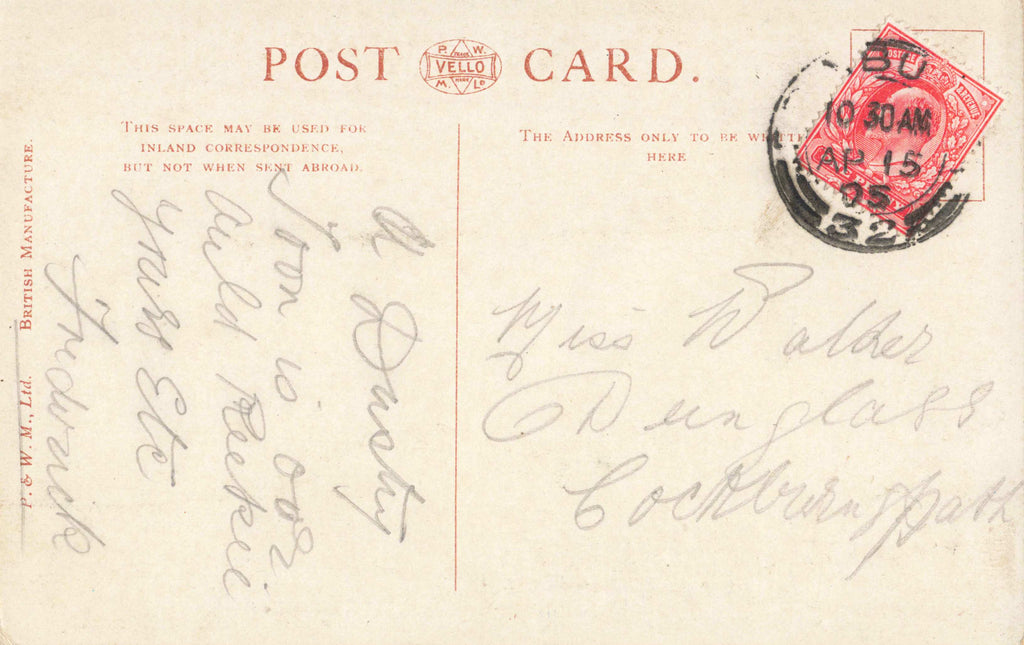 POST CARD.
P. W. VELLO M. Ld
TRADE MARK
THIS SPACE MAY BE USED FOR
INLAND CORRESPONDENCE,
BUT NOT WHEN SENT ABROAD.
THE ADDRESS ONLY TO BE
HERE
BU
10 30 AM
AP 15
05
32
P. & W. M., Ltd. BRITISH MANUFACTURE.
A Dusty
Toon is oor
Auld Reekie
Yours Etc
Frederick
Miss Walker
Dunglass
Cockburnspath